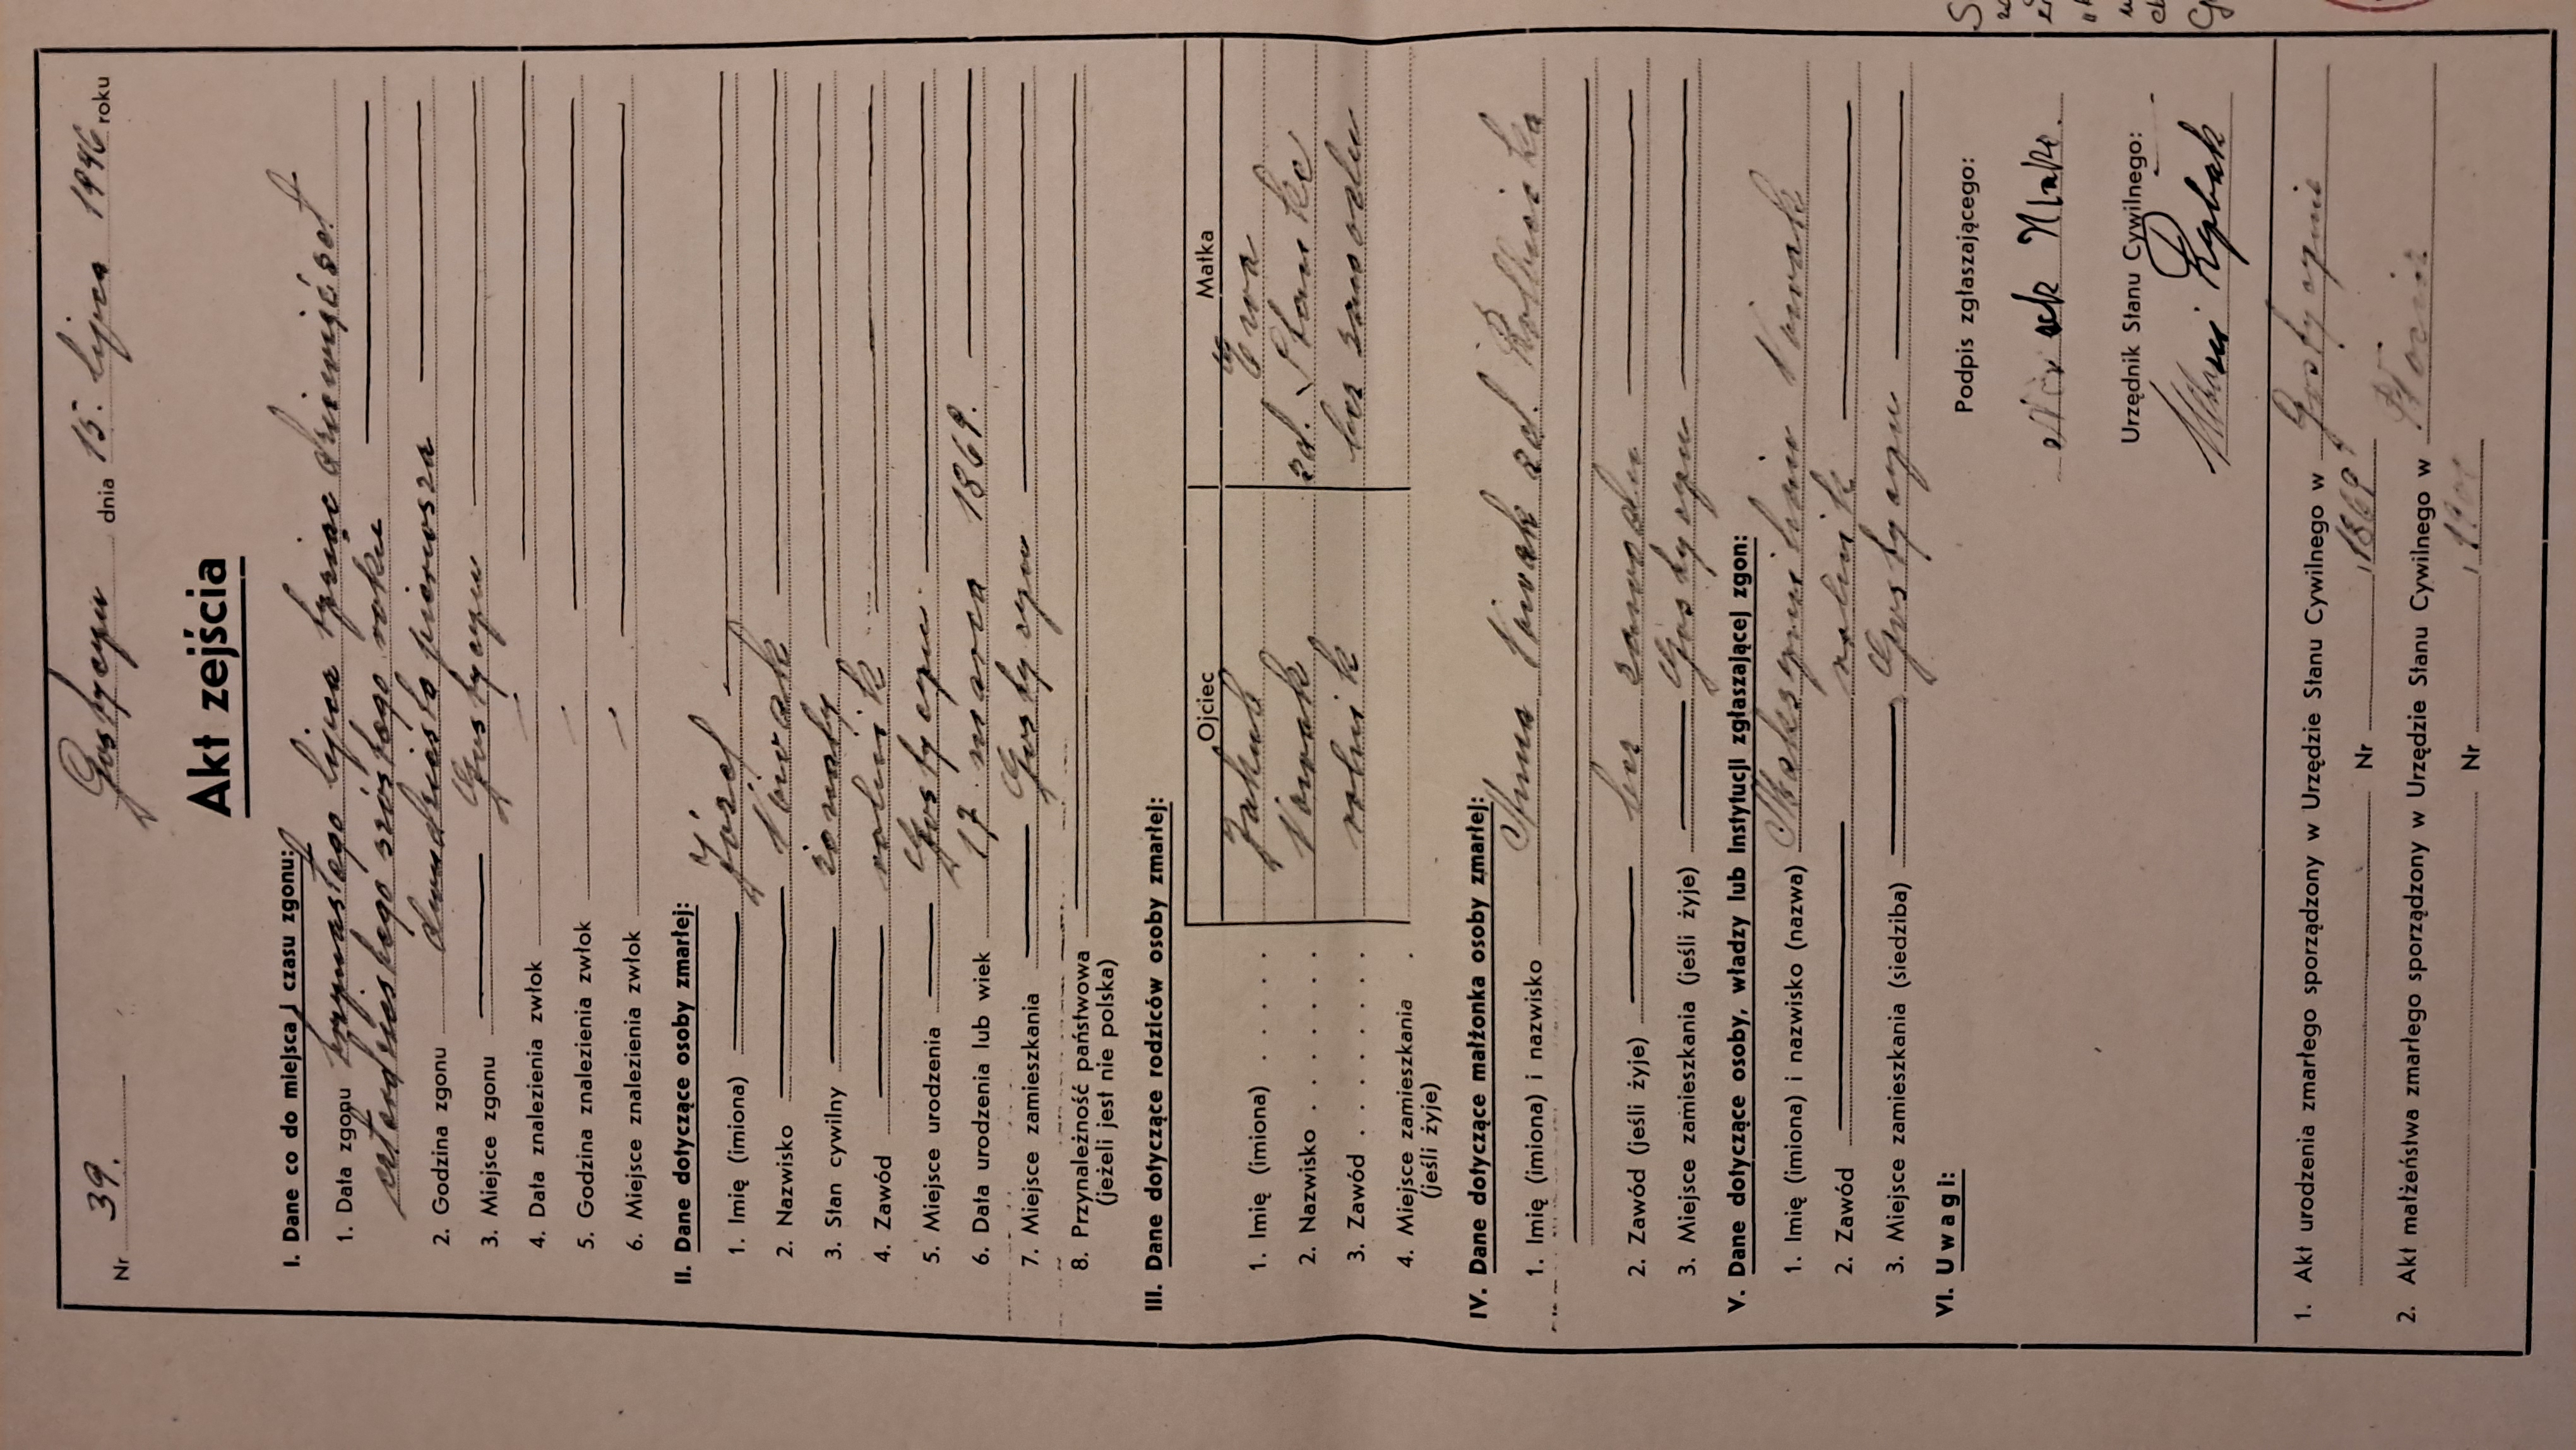 Nr 39. Gostycyn dnia 15. lipca 1946 roku
Akt zejścia
I. Dane co do miejsca i czasu zgonu:
1. Data zgonu trzynastego lipca tysiąc dziewięćset
czterdziestego szóstego roku
2. Godzina zgonu dwudziesta pierwsza
3. Miejsce zgonu Gostycyn
4. Data znalezienia zwłok
5. Godzina znalezienia zwłok
6. Miejsce znalezienia zwłok
II. Dane dotyczące osoby zmarłej:
1. Imię (imiona) Józef
2. Nazwisko Nowak
3. Stan cywilny żonaty
4. Zawód rolnik
5. Miejsce urodzenia Gostycyn
6. Data urodzenia lub wiek 17 marca 1869.
7. Miejsce zamieszkania Gostycyn
8. Przynależność państwowa
(jeżeli jest nie polska)
III. Dane dotyczące rodziców osoby zmarłej:
Ojciec Matka
1. Imię (imiona) Jakub Ewa
2. Nazwisko Nowak zd.
3. Zawód rolnik bez zawodu
4. Miejsce zamieszkania
(jeśli żyje)
IV. Dane dotyczące małżonka osoby zmarłej:
1. Imię (imiona) i nazwisko Anna Nowak zd.
2. Zawód (jeśli żyje) bez zawodu
3. Miejsce zamieszkania (jeśli żyje) Gostycyn
V. Dane dotyczące osoby, władzy lub instytucji zgłaszającej zgon:
1. Imię (imiona) i nazwisko (nazwa) Maksymilian Nowak
2. Zawód rolnik
3. Miejsce zamieszkania (siedziba) Gostycyn
VI. Uwagi:
Podpis zgłaszającego:
Urzędnik Stanu Cywilnego:
Rybak
1. Akt urodzenia zmarłego sporządzony w Urzędzie Stanu Cywilnego w Gostycynie
Nr /1869
2. Akt małżeństwa zmarłego sporządzony w Urzędzie Stanu Cywilnego w
Nr